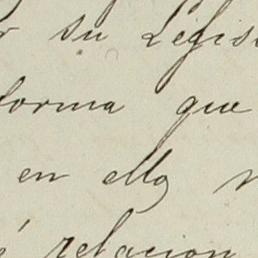 su Legis
forma que
en ella
relacion